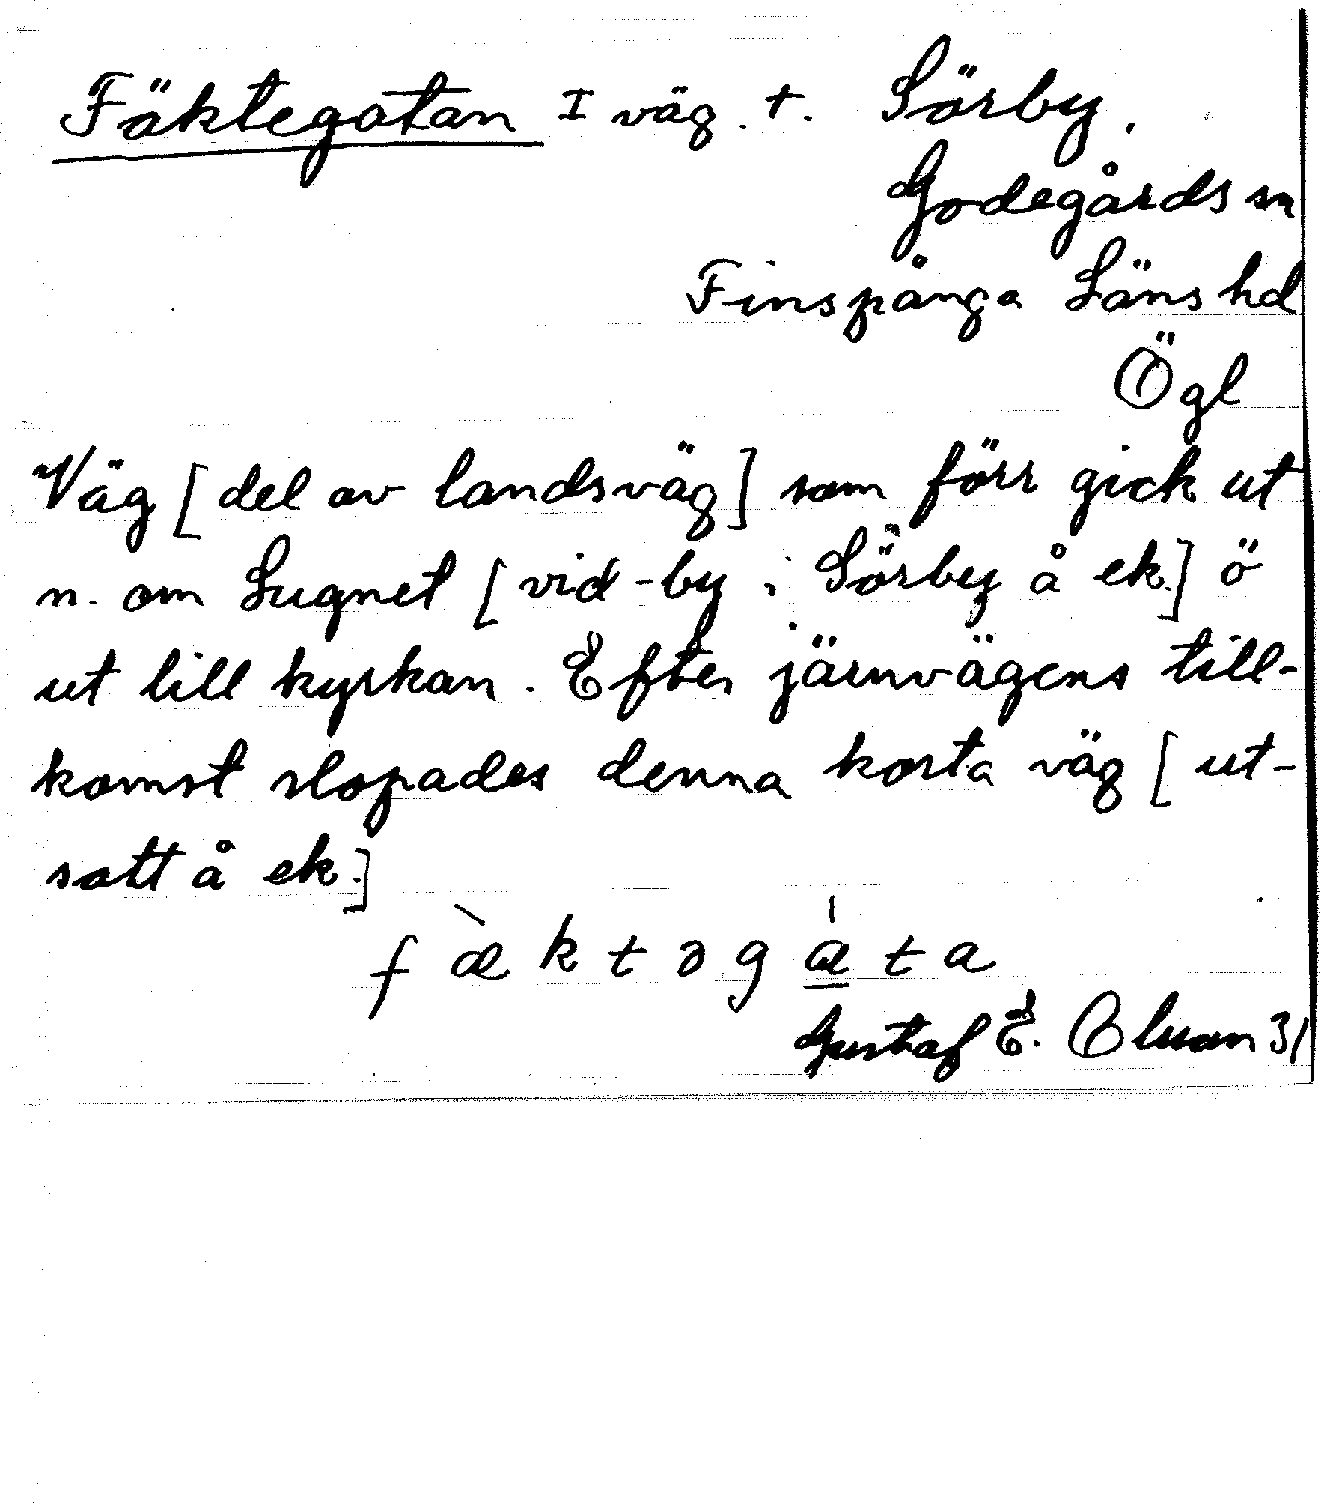 Fäktegatan I väg. t. Sörby,
Godegårds sn
Finspånga Läns hd
Ögl
Väg [del av landsväg] som förr gick ut
n. om Lugnet [vid -by i Sörby å ek.] ö
ut till kyrkan. Efter järnvägens till-
komst slopades denna korta väg [ut-
satt å ek.]
f æ̀ k t ə g a̲ t a
Gustaf E. 31